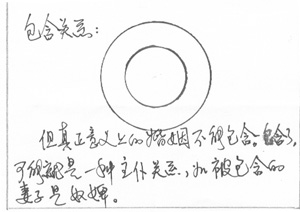 包含关系：
但真正意义上的婚姻不能包含。包含了，
可能就是一种主仆关系，如被包含的
妻子是奴婢。